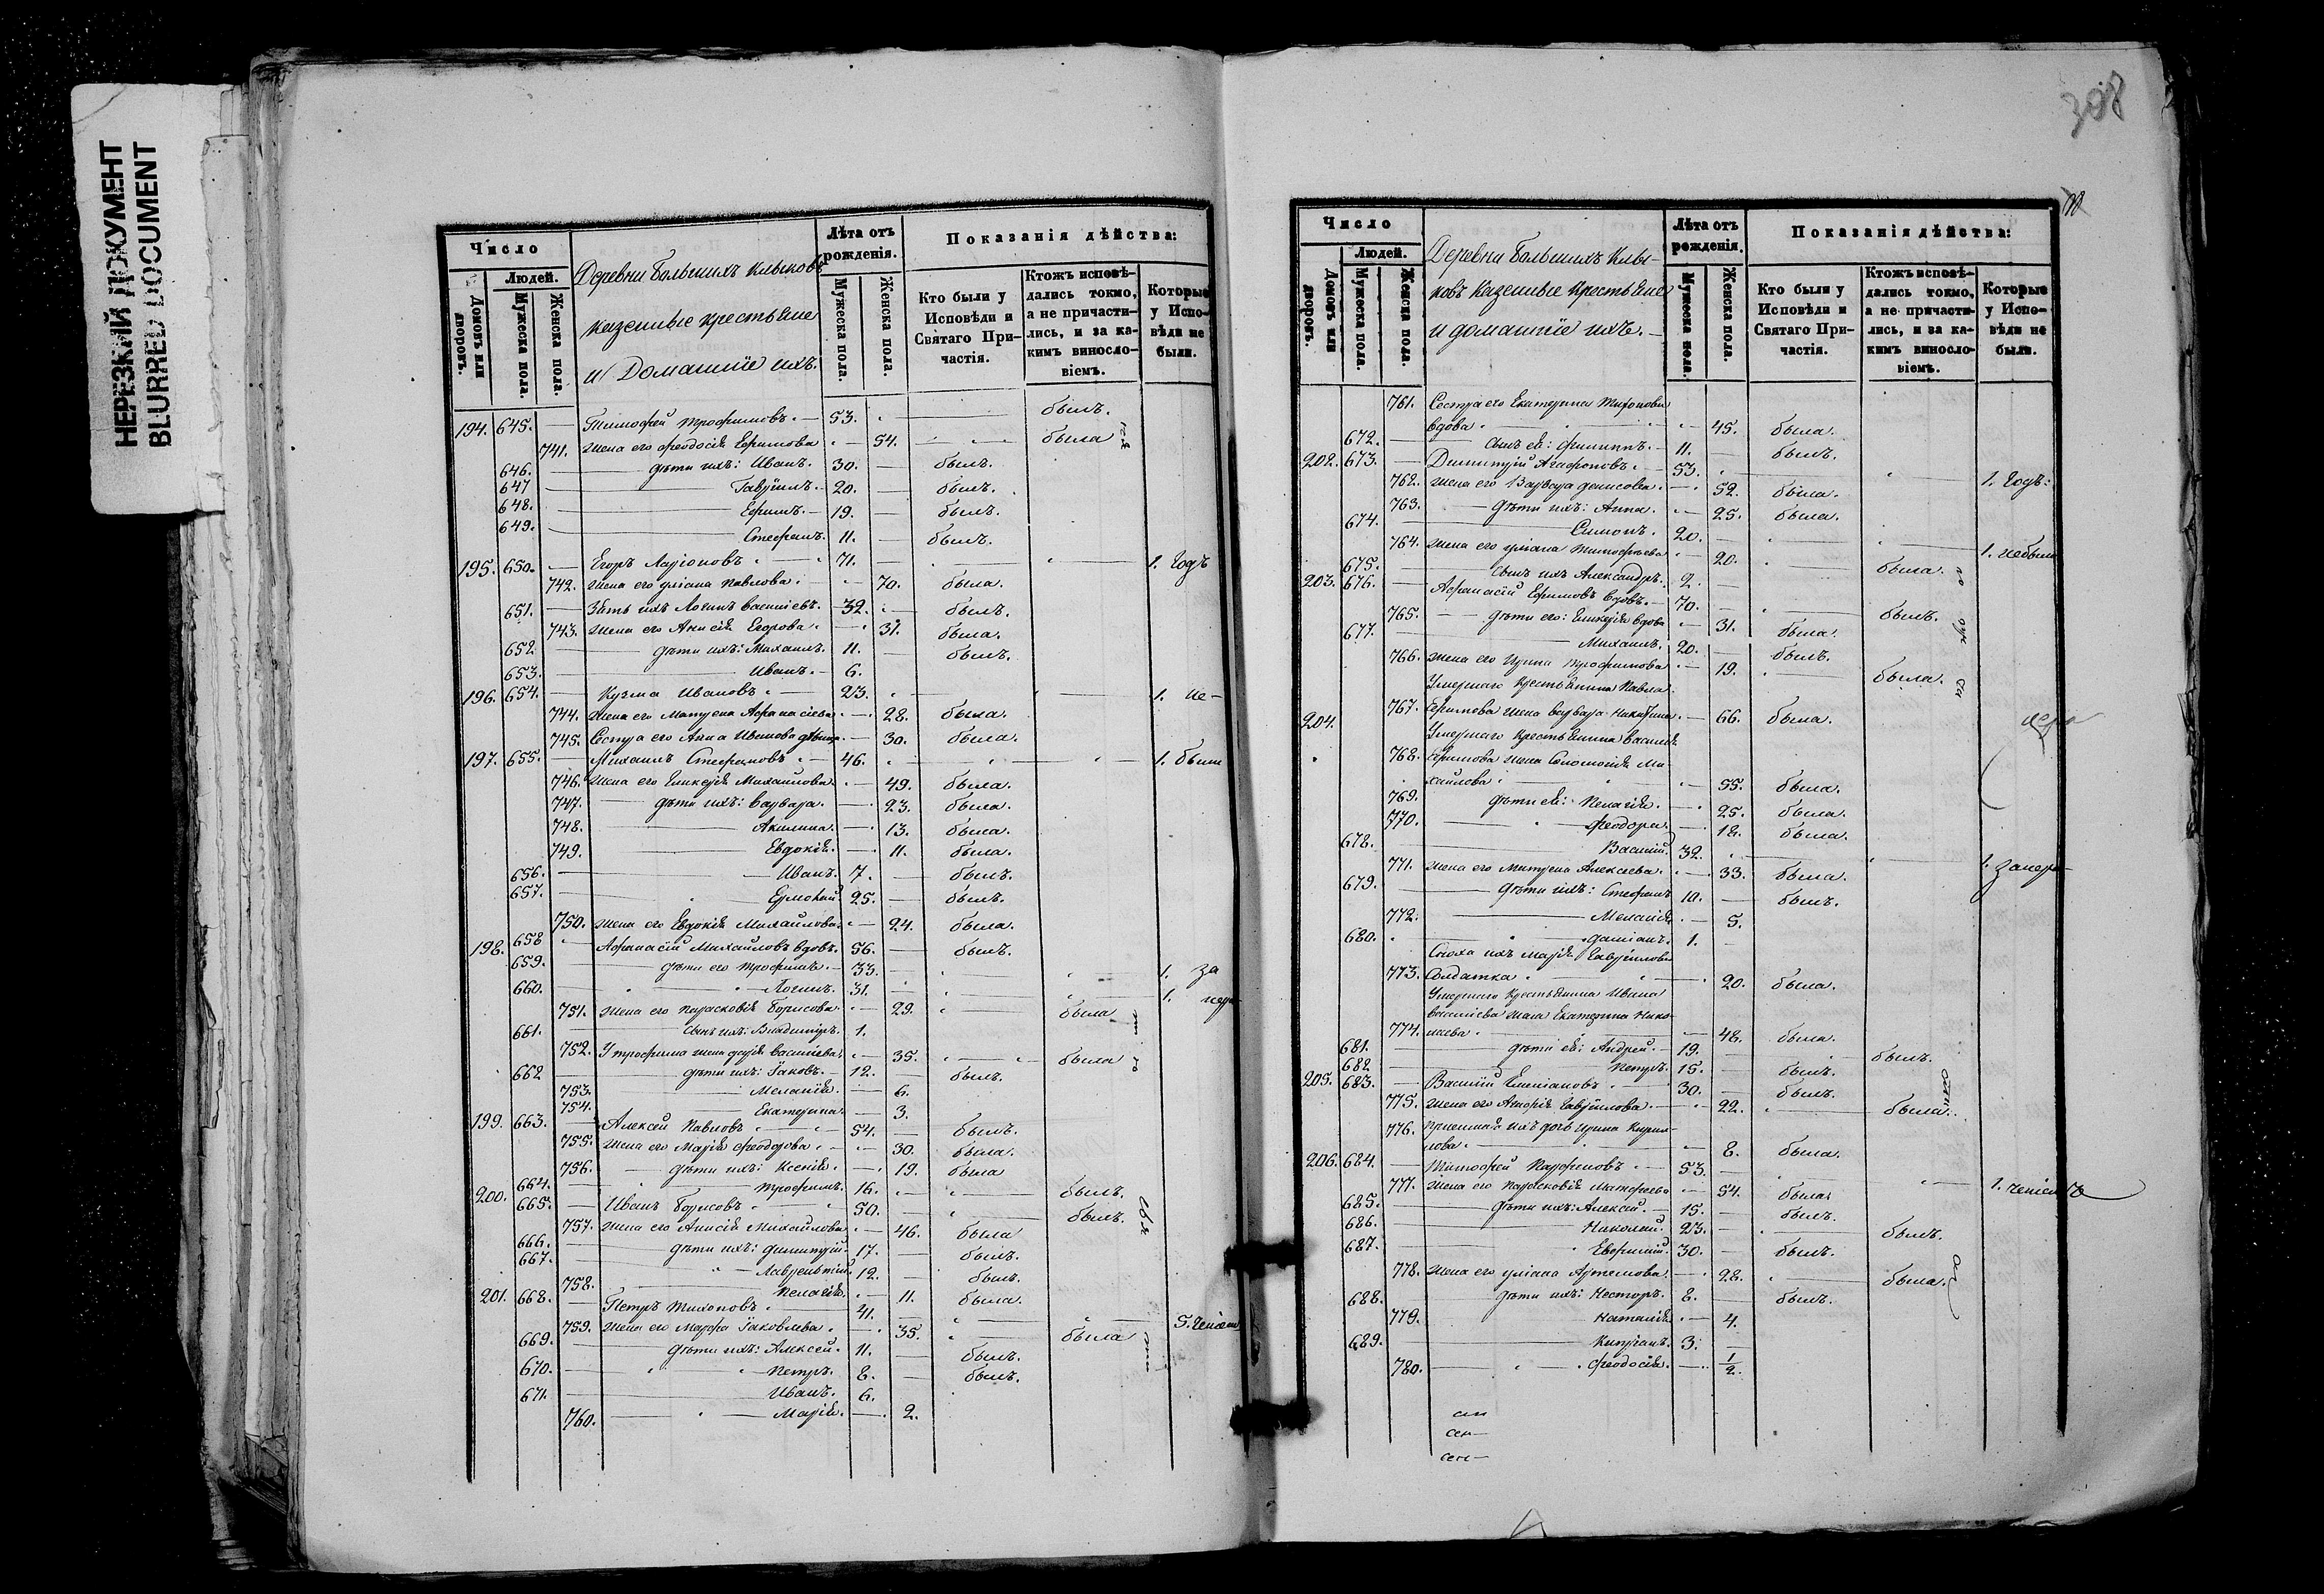 НЕРЕЗКИЙ ДОКУМЕНТ
BLURRED DOCUMENT
Число
Людей.
Домовъ или дворовъ.
Мужеска пола.
Женска пола.
Деревни Большихъ Клыковъ
казенные крестьяне
и Домашніе ихъ.
Лѣта отъ рожденія.
Мужеска пола.
Женска пола.
Показанія дѣйства:
Кто были у Исповѣди и Святаго Причастія.
Ктожъ исповѣдались токмо, а не причастились, и за какимъ винословіемъ.
Которые у Исповѣди не были.
194. 645. Тимофей Трофимовъ. 53. былъ.
741. жена его Феодосія Ефимова 54. была
646. дѣти ихъ: Иванъ. 30. былъ.
647 Гавріилъ. 20. былъ.
648. Ефимъ. 19. былъ.
649. Стефанъ. 11. былъ.
195. 650. Егоръ Ларіоновъ 71. 1. Годъ
742. жена его Уліана Павлова. 70. была.
651. Зять ихъ Логинъ Васильевъ. 32. былъ.
743. жена его Анисія Егорова. 31. была.
652 дѣти ихъ: Михаилъ. 11. былъ.
653. Иванъ. 6.
196. 654. Кузма Ивановъ 23. 1. не-
744. жена его Матрена Афанасіева. 28. была.
745. Сестра его Анна Иванова дѣвица. 30. была.
197. 655. Михаилъ Стефановъ 46. 1. были
746. жена его Гликерія Михайлова. 49. была.
747. дѣти ихъ: Варвара. 23. была.
748. Акилина. 13. была.
749. Евдокія. 11. была.
656. Иванъ. 7. былъ.
657. Ермолай. 25. былъ.
750. жена его Евдокія Михайлова. 24. была.
198. 658 Афанасій Михайловъ вдовъ. 56. былъ.
659. дѣти его Трофимъ. 33. 1. за
660. Логинъ. 31. 1. нера
751. жена его Парасковія Борисова. 29. была
661. сынъ ихъ: Владиміръ. 1.
752. У Трофима жена Дарія Васильева. 35. была
662 дѣти ихъ: Іаковъ. 12. былъ.
753. Меланія. 6.
754. Екатерина. 3.
199. 663. Алексей Павловъ 54. былъ.
755. жена его Марія Феодорова 30. была.
756. дѣти ихъ: Ксенія. 19. была
664. Трофимъ. 16. былъ.
200. 665. Иванъ Борисовъ 50. былъ.
757. жена его Анисія Михайлова 46. была
666. дѣти ихъ: Димитрій. 17. былъ.
667. Лаврентій. 12. былъ.
758. Пелагія. 11. была.
201. 668. Петръ Тихоновъ 41. 5.
759. жена его Марфа Іаковлева. 35. была
669. дѣти ихъ: Алексей. 11. былъ.
670. Петръ. 8. былъ.
671. Иванъ. 6.
760. Марія. 2.
308
Число
Людей.
Домовъ или дворовъ.
Мужеска пола.
Женска пола.
Деревни Большихъ Клы-
ковъ казенные крестьяне
и домашніе ихъ.
Лѣта отъ рожденія.
Мужеска пола.
Женска пола.
Показанія дѣйства:
Кто были у Исповѣди и Святаго Причастія.
Ктожъ исповѣдались токмо, а не причастились, и за какимъ винословіемъ.
Которые у Исповѣди не были.
761. Сестра его Екатерина Тихонова
вдова 45. была.
672. сынъ ея: Филиппъ. 11. былъ.
202. 673. Димитрій Агафоновъ. 53. 1. Годъ:
762. жена его Варвара Денисова. 52. была.
763. дѣти ихъ: Анна. 25. была.
674. Симонъ. 20. 1. небыли
764. жена его Уліана Тимофѣева 20. была.
675. сынъ ихъ Александръ. 2.
203. 676. Афанасій Ефимовъ вдовъ. 70. былъ.
765. дѣти его: Гликерія вдова 31. была.
677. Михаилъ. 20. былъ.
766. жена его Ирина Трофимова 19. была.
Умершаго крестьянина Павла
204. 767. Ефимова жена Варвара Никитина. 66. была.
Умершаго крестьянина Василія
768. Ефимова жена Соломонія Ми-
хайлова 55. была.
769. дѣти ея: Пелагія. 25. была.
770. Феодора. 18. была.
678. Василій. 32. 1.
771. жена его Матрена Алексіева. 33. была.
679. дѣти ихъ: Стефанъ 10. былъ.
772. Меланія 5.
680. Даміанъ. 1.
Сноха ихъ Марія Гавріилова
773. Солдатка 20. была.
Умершаго крестьянина Ивана
Васильева жена Екатерина Нико-
774. лаева. 48. была.
681. дѣти ея: Андрей. 19. былъ.
682 Петръ. 15. былъ.
205. 683. Василій Емеліановъ 30. былъ.
775. жена его Анфія Гавріилова. 22. была.
776. Пріемная ихъ дочь Ирина Кирил-
лова. 8. была.
206. 684. Тимофей Парфеновъ 53. 1.
777. жена его Парасковія Матфеева 54. была
685. дѣти ихъ: Алексій. 15. былъ.
686. Николай. 23. былъ.
687. Евфимій. 30. былъ.
778. жена его Уліана Артемова. 28. была.
688. дѣти ихъ: Несторъ. 8. былъ.
779. Наталія. 4.
689. Кипріанъ. 3.
780. Феодосія. 1/2.